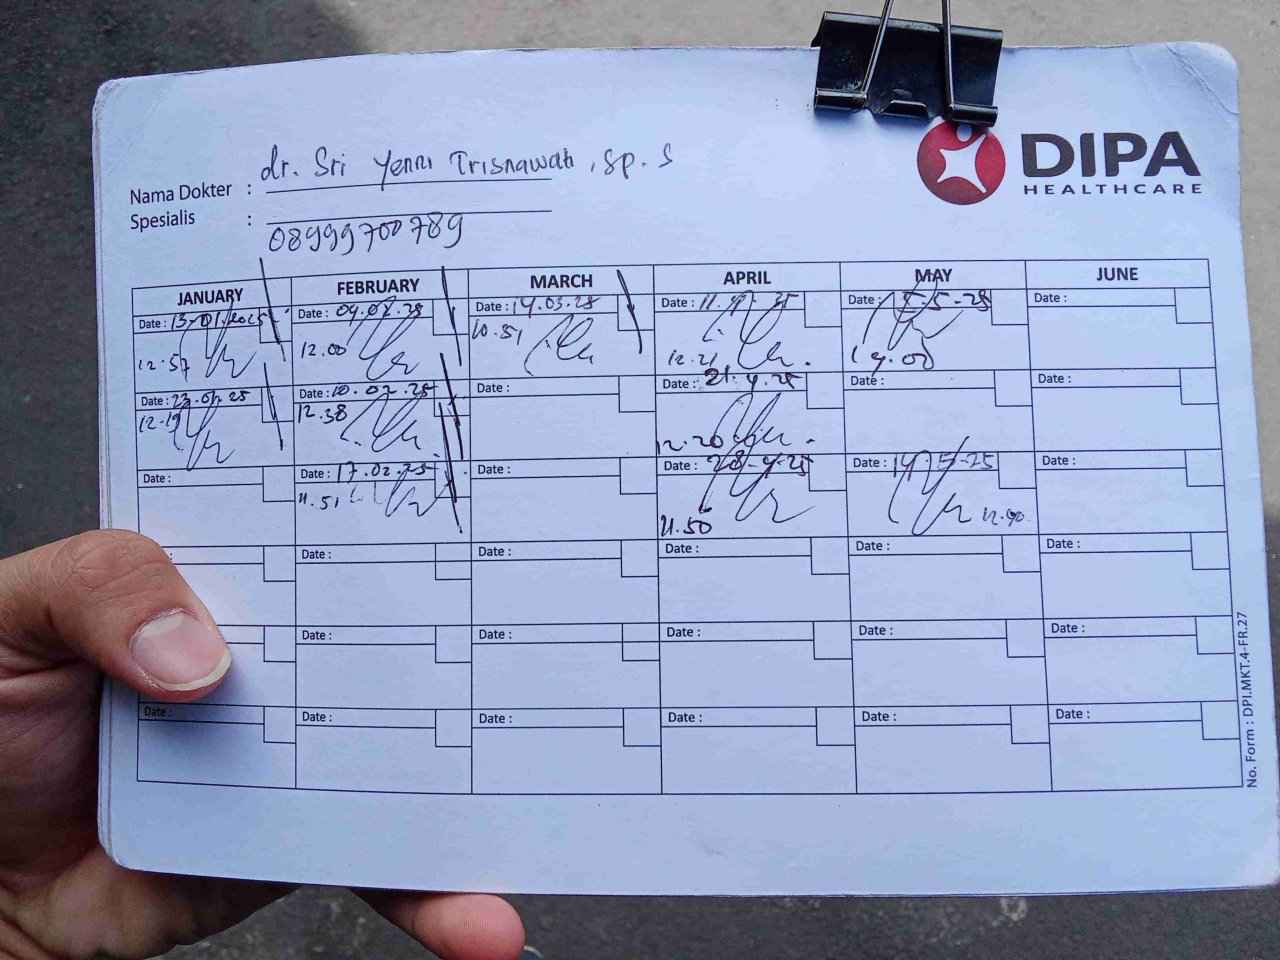 DIPA
HEALTHCARE
Nama Dokter : dr. Sri Yenni Trisnawati, Sp. S
Spesialis :
08999700789
JANUARY FEBRUARY MARCH APRIL MAY JUNE
Date : 13-01.2025 Date : 04.02.25 Date : 14.03.25 Date : 11. Date : 5-5-25 Date :
12.57 12.00 10.51 12.21 14.00
Date : 23.01 25 Date : 10.02.25 Date : Date : 21.4.25 Date : Date :
12.19 12.38 12.20
Date : Date : 17.02.25 Date : Date : 28-4-25 Date : 14-5-25 Date :
11.51 11.50 12.40
Date : Date : Date : Date : Date :
Date : Date : Date : Date : Date :
Date : Date : Date : Date : Date : Date :
No. Form : DPI.MKT.4-FR.27